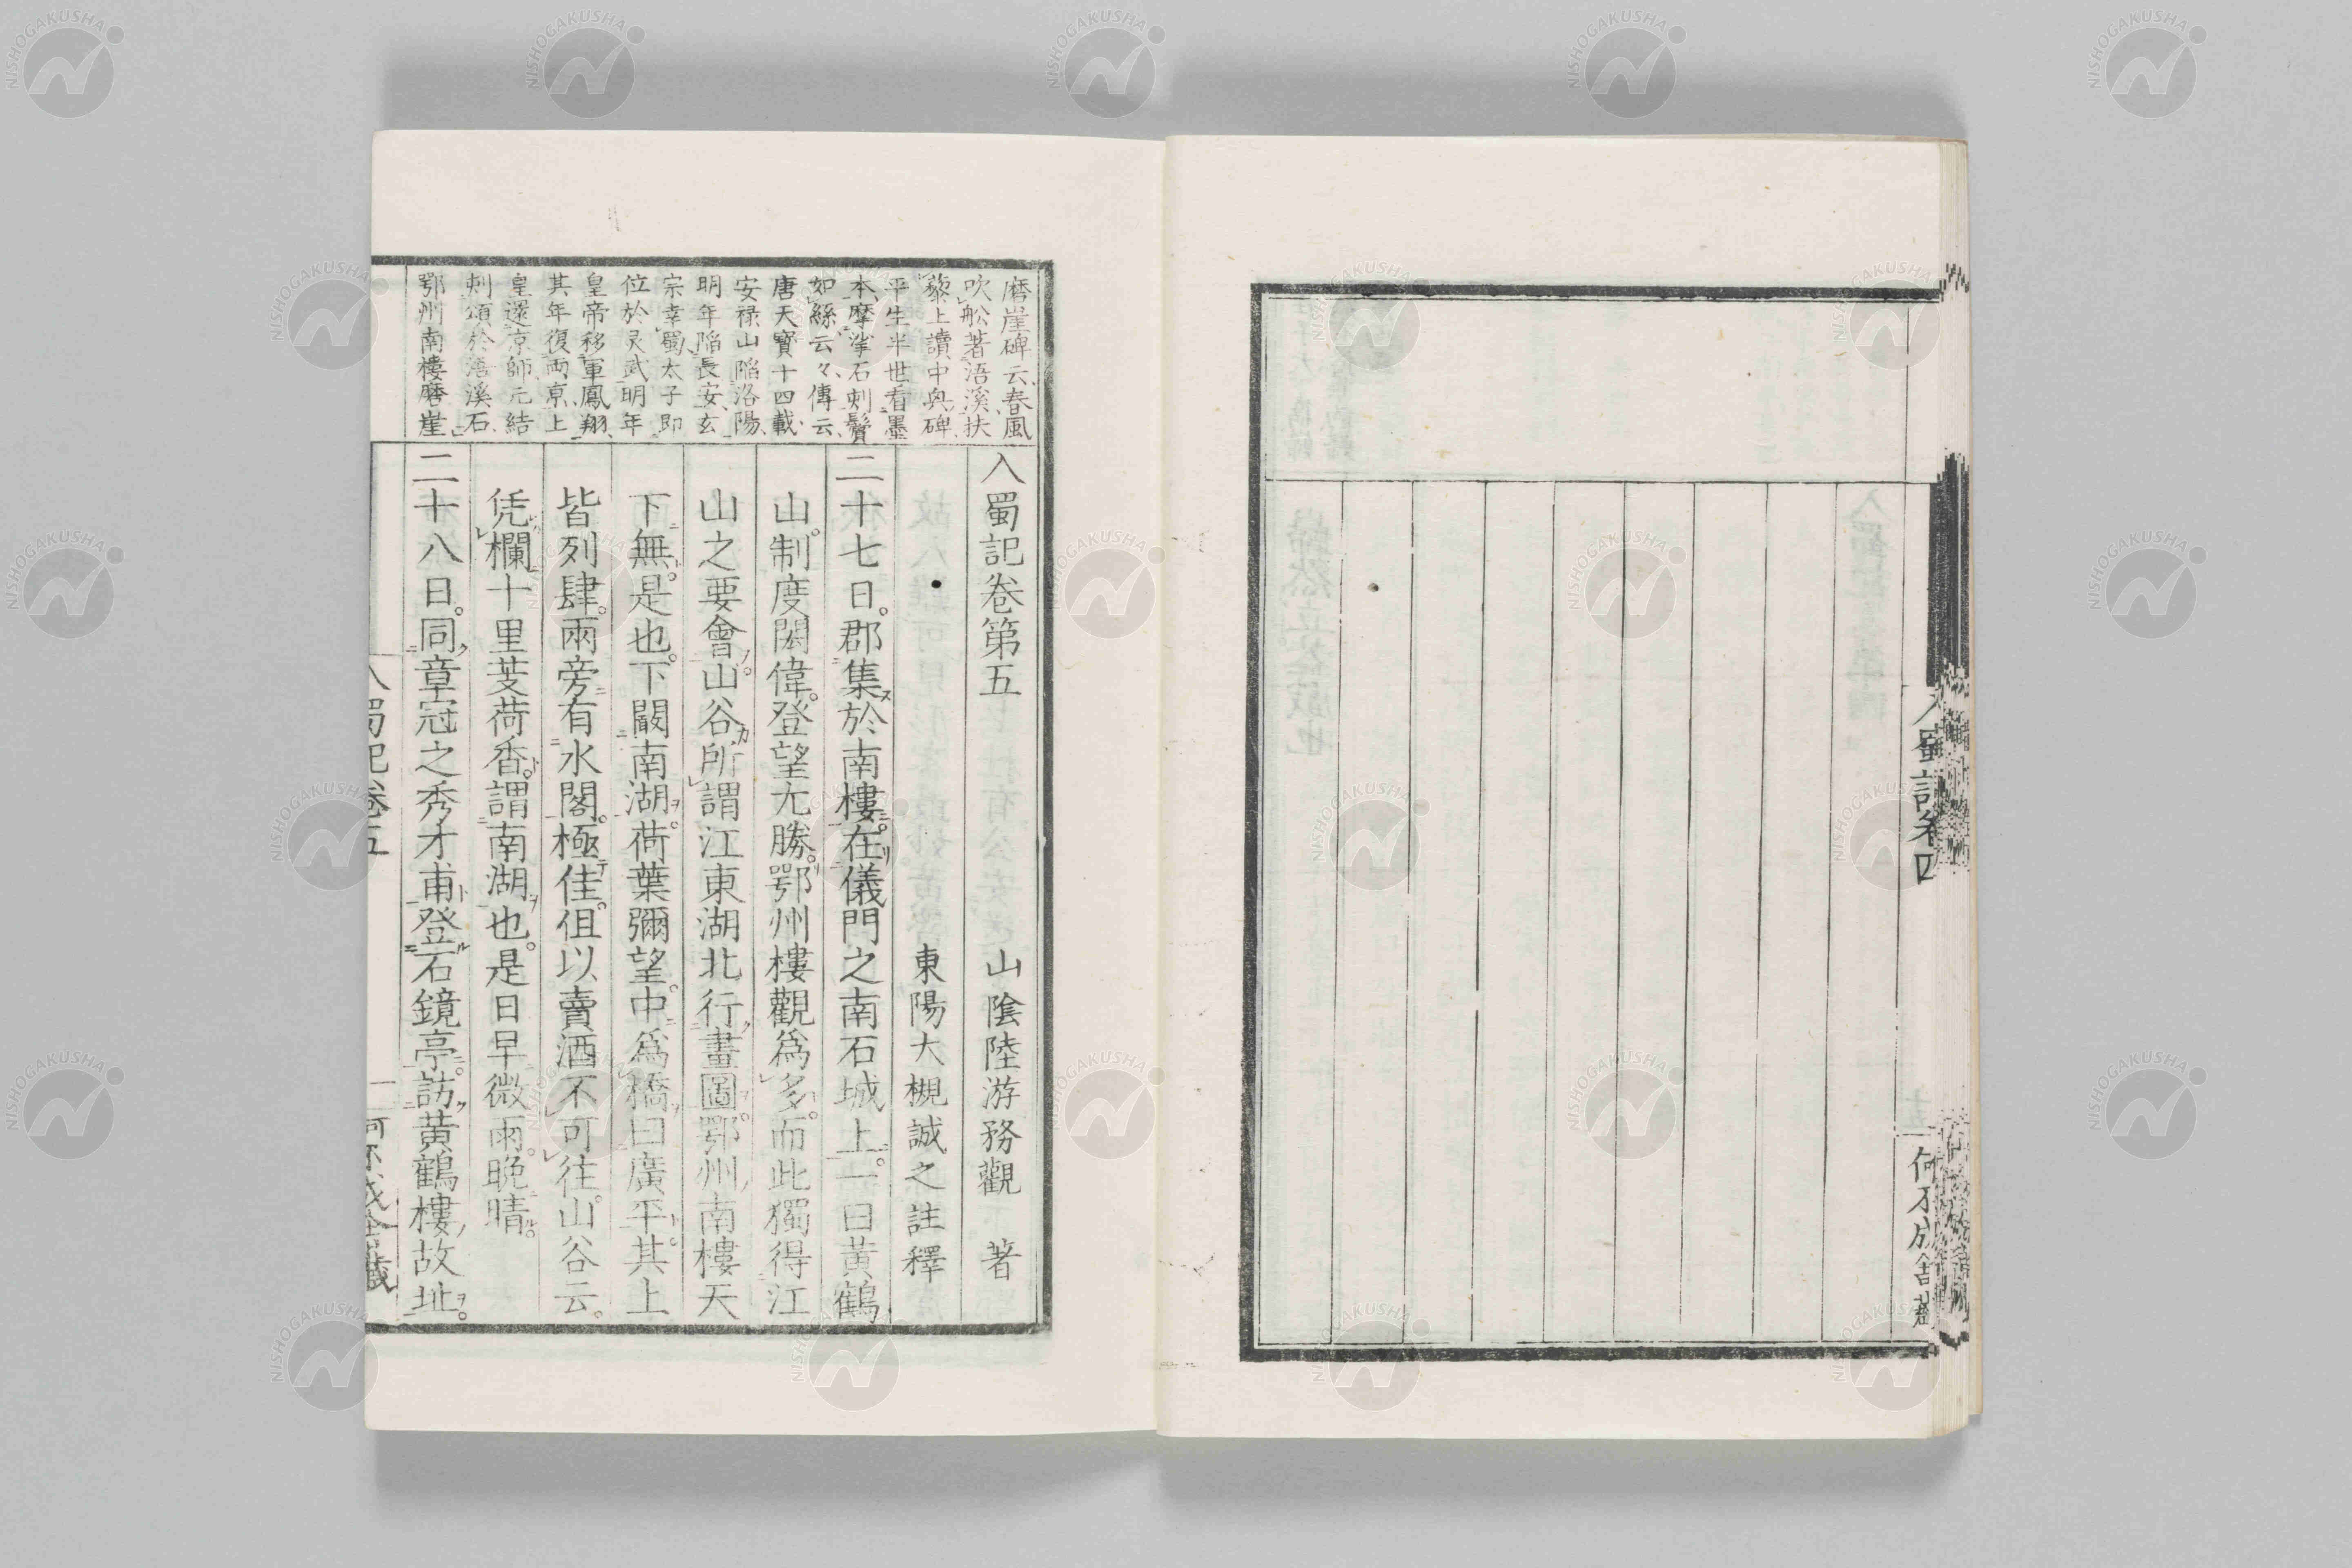 入蜀記卷四
何不成舎蔵
磨崖碑云春風
吹舩著浯溪扶
藜上讀中興碑
平生半世看墨
本摩挲石刺鬢
如絲云々傳云
唐天寶十四載
安禄山陥洛陽
明年陥長安玄
宗幸蜀太子即
位於灵武明年
皇帝移軍鳳翔
其年復両京上
皇還京師元結
刺頌於浯溪石
鄂州南樓磨崖
入蜀記卷第五
山陰陸游務觀 著
東陽大槻誠之註釋
二十七日。郡集於南樓。在儀門之南石城上。一曰黄鶴
山。制度閎偉。登望尤勝。鄂州樓觀為多。而此獨得江
山之要會。山谷所謂江東湖北行畫圖。鄂州南樓天
下無。是也。下闞南湖。荷葉彌望。中為橋曰廣平。其上
皆列肆。兩旁有水閣。極佳。但以賣酒不可往。山谷云。
凭欄十里芰荷香。謂南湖也。是日早微雨。晩晴。
二十八日。同章冠之秀才甫登石鏡亭。訪黄鶴樓故址。
入蜀記卷五
一
何不成舎蔵
NISHOGAKUSHA